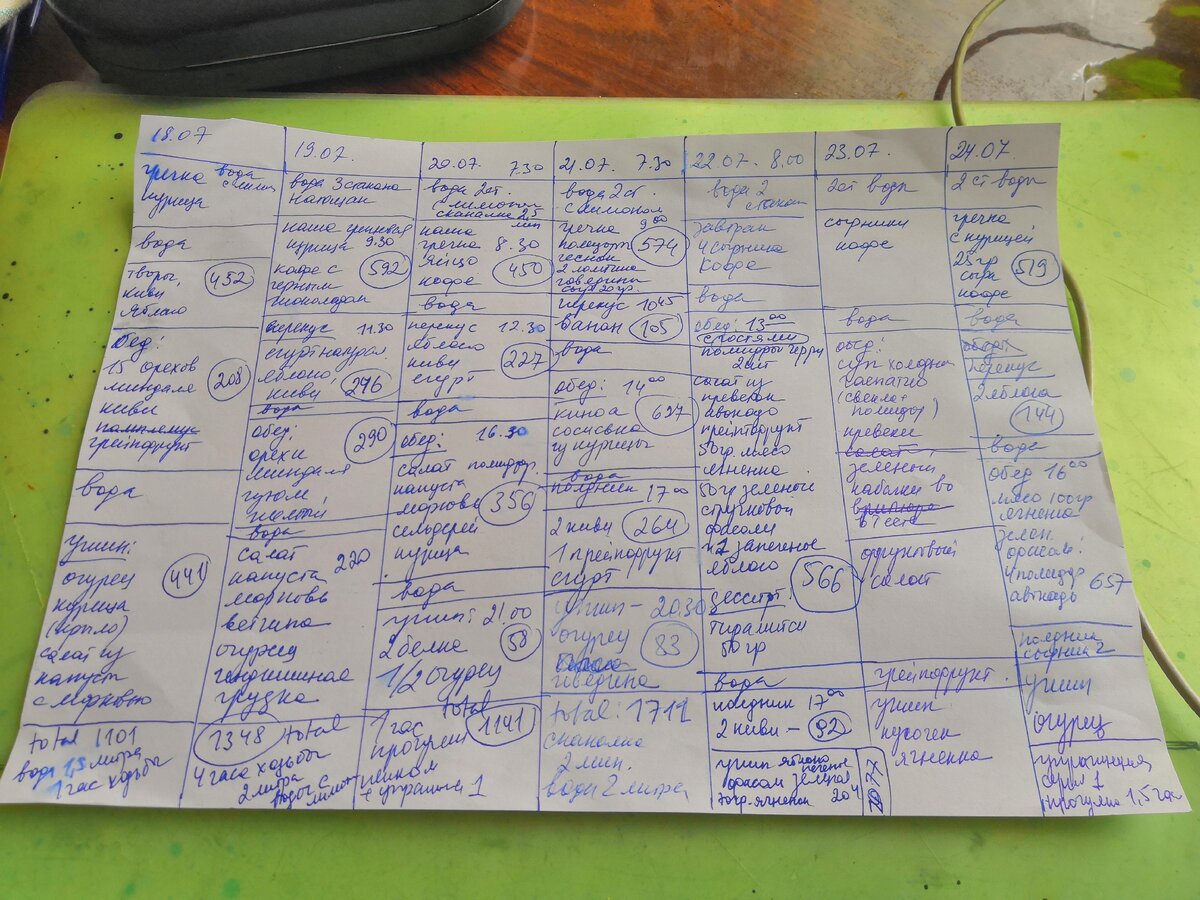 18.07
гречка вода
с лимон
курица
вода
творог, 452
киви
яблоко
Обед:
15 орехов
миндаля 208
киви
грейпфрукт
вода
ужин:
огурец 441
курица
салат из
капуст
с морковью
total 1101
вода 1,5 литра
1 час ходьбы
19.07.
вода 3 стакана
натощак
каша гречневая
курица 9.30
кофе с 592
черным
шоколадом
перекус 11.30
йогурт натурал
яблоко,
киви 246
вода
обед: 290
орехи
миндаля
вода
салат
капуста 220
морковь
ветчина
огурец
грудка
1348 total
4 часа ходьбы
2 литра
воды с лимон
20.07. 7.30
вода 2ст.
с лимоном
скакалка 2,5
мин
каша
гречка 8.30
яйцо
кофе 450
вода
перекус 12.30
яблоко
киви 227
йогурт
вода
обед: 16.30
салат помидор.
капуста
морковь 356
сельдерей
курица
вода
ужин: 21.00
2 белка 58
1/2 огурец
total
1 час 1141
прогулки
21.07. 7.30
вода 2 ст.
с лимоном
гречка 9 00
574
чеснок
2 ломтика
говядины
сыр 20 гр
перекус 10 45
банан 105
вода
обед: 14 00
киноа 627
сосиска
из курицы
вода
полдник 17 00
2 киви 264
1 грейпфрукт
йогурт
ужин - 20.30
огурец
83
говядина
total: 1711
скакалка
2 мин.
вода 2 литра
22.07. 8.00
вода 2
стакан
завтрак
4 сырника
кофе
вода
обед: 13 00
с гостями
помидоры черри
2 шт
салат из
креветок
авокадо
грейпфрукт
50гр мясо
ягненка
50 гр зеленой
стручковой
фасоли
1/2 запеченое
яблоко 566
десерт:
тирамису
50 гр
вода
полдник 17 00
2 киви - 92
ужин яблоко
печеное
фасоль зеленая
30гр. ягненок 204
23.07.
2ст воды
сырники
кофе
вода
обед:
суп холодный
гаспачо
(свекла +
помидор)
креветки
салат,
зеленый
кабачки во
в тесте
фруктовый
салат
грейпфрукт.
ужин
кусочек
ягненка
24.07.
2 ст воды
гречка
с курицей
25 гр
сыра 519
кофе
вода
обед:
Перекус
2 яблока
144
вода
обед 16 00
мясо 100гр
ягненка
зелен.
фасоль.
4 помидор
авокадо 657
полдник
сырник 2
ужин
огурец
прогулка 1,5 час